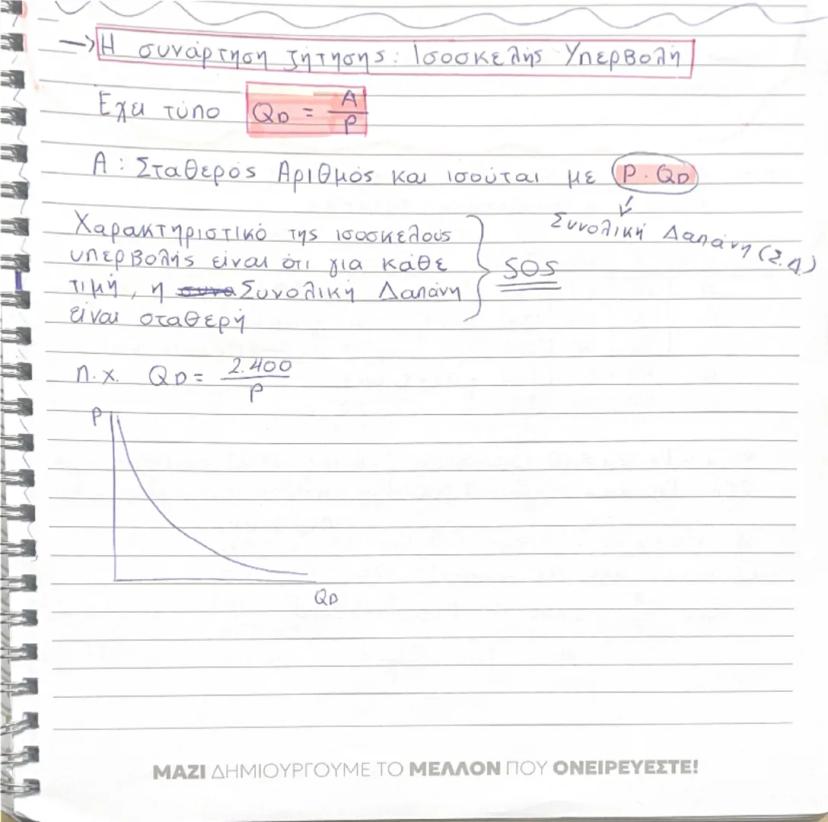 → Η συνάρτηση ζήτησης: Ισοσκελής Υπερβολή
Έχει τύπο QD = A/P
Α: Σταθερός Αριθμός και ισούται με P·QD
Συνολική Δαπάνη (Σ.Δ)
Χαρακτηριστικό της ισοσκελούς
υπερβολής είναι ότι για κάθε
τιμή, η συνα Συνολική Δαπάνη
είναι σταθερή
SOS
π.χ. QD = 2.400/P
P
QD
ΜΑΖΙ ΔΗΜΙΟΥΡΓΟΥΜΕ ΤΟ ΜΕΛΛΟΝ ΠΟΥ ΟΝΕΙΡΕΥΕΣΤΕ!